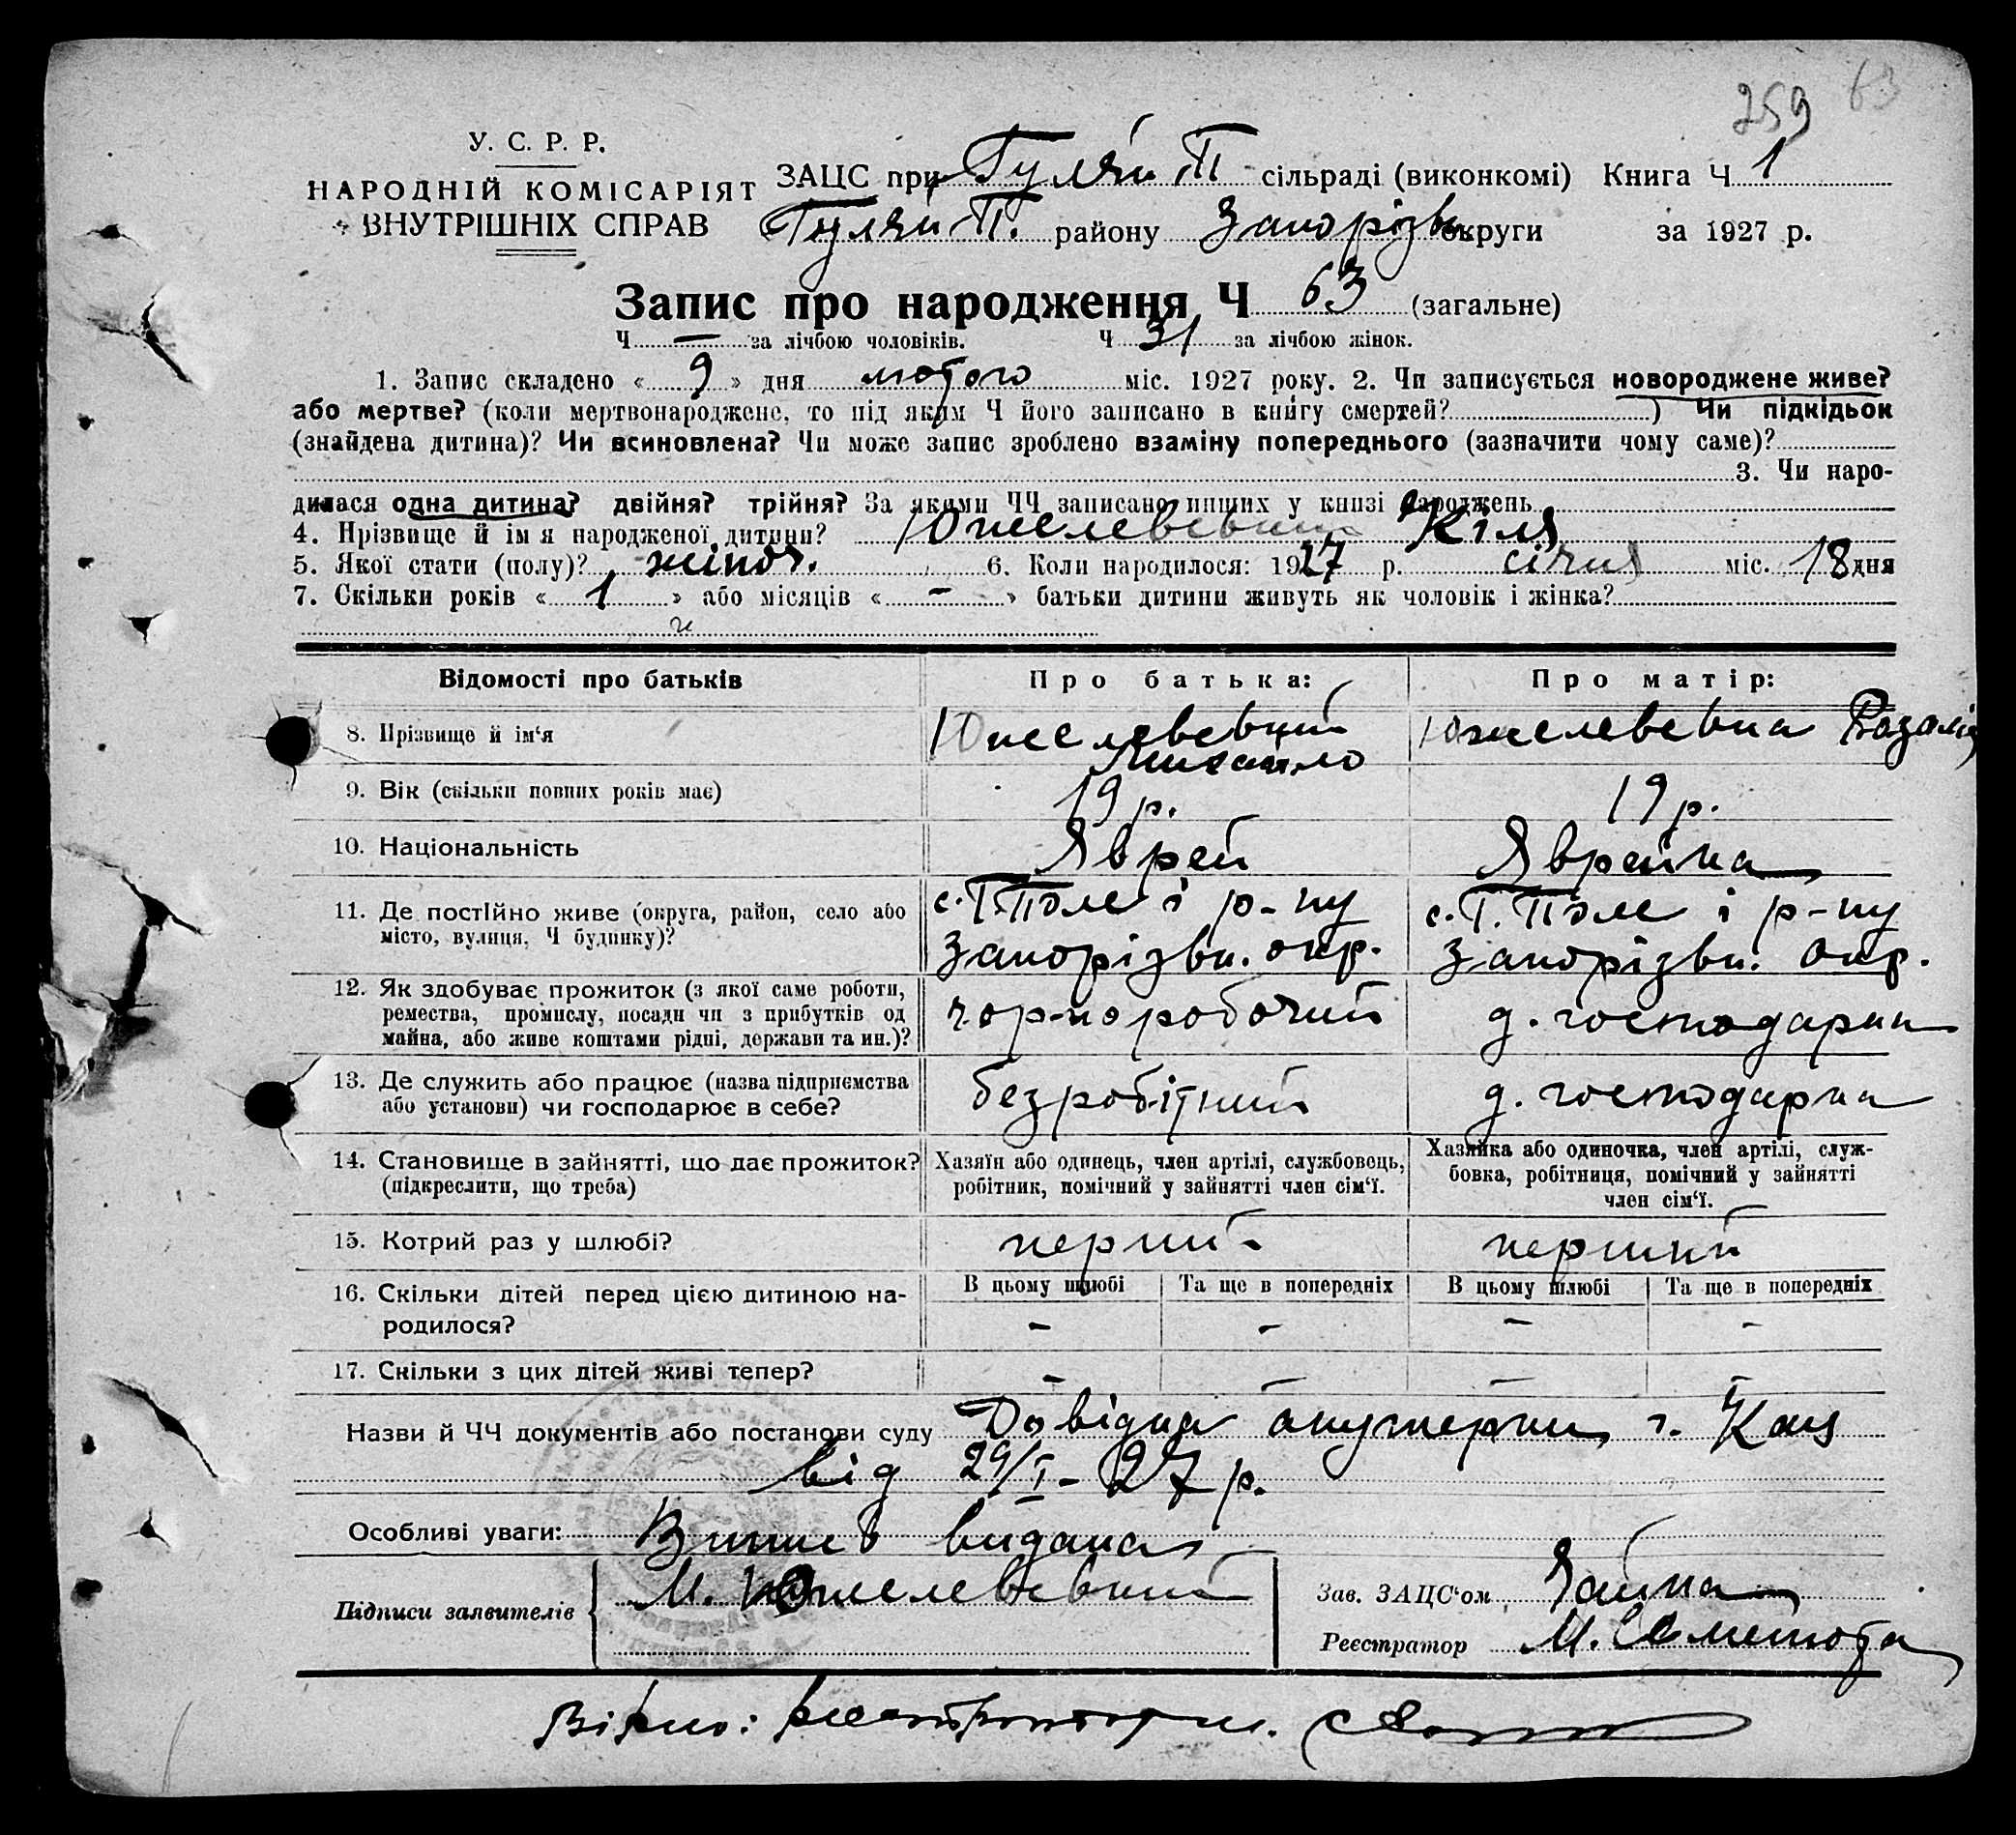 259 63
У. С. Р. Р.
НАРОДНІЙ КОМІСАРІЯТ
ВНУТРІШНІХ СПРАВ
ЗАЦС при Гуляй П сільраді (виконкомі) Книга Ч 1
Гуляй П. району Запорізьк. округи за 1927 р.
Запис про народження Ч 63 (загальне)
Ч — за лічбою чоловіків. Ч 31 за лічбою жінок.
1. Запис складено « 9 » дня лютого міс. 1927 року. 2. Чи записується новороджене живе?
або мертве? (коли мертвонароджене, то під яким Ч його записано в книгу смертей? ) Чи підкідьок
(знайдена дитина)? Чи всиновлена? Чи може запис зроблено взаміну попереднього (зазначити чому саме)?
3. Чи наро-
дилася одна дитина? двійня? трійня? За якими ЧЧ записано инших у книзі народжень
4. Прізвище й ім я народженої дитини? Южелевський Кіля
5. Якої стати (полу)? жіноч. 6. Коли народилося: 1927 р. січня міс. 18 дня
7. Скільки років « 1 » або місяців « – » батьки дитини живуть як чоловік і жінка?
Відомості про батьків
Про батька:
Про матір:
8. Прізвище й ім‘я
Южелевський Михайло
Южелевська Розалія
9. Вік (скільки повних років має)
19 р.
19 р.
10. Національність
Яврей
Яврейка
11. Де постійно живе (округа, район, село або
місто, вулиця, Ч будинку)?
с. Г. Поле і р-ну
Запорізьк. окр.
с. Г. Поле і р-ну
Запорізьк. окр.
12. Як здобуває прожиток (з якої саме роботи,
ремества, промислу, посади чи з прибутків од
майна, або живе коштами рідні, держави та ин.)?
чорноробочий
д. господарка
13. Де служить або працює (назва підприємства
або установи) чи господарює в себе?
безробітний
д. господарка
14. Становище в зайнятті, що дає прожиток?
(підкреслити, що треба)
Хазяїн або одинець, член артілі, службовець,
робітник, помічний у зайнятті член сім‘ї.
Хазяйка або одиночка, член артілі, служ-
бовка, робітниця, помічний у зайнятті
член сім‘ї.
15. Котрий раз у шлюбі?
перший
перший
16. Скільки дітей перед цією дитиною на-
родилося?
В цьому шлюбі Та ще в попередніх В цьому шлюбі Та ще в попередніх
– – – –
17. Скільки з цих дітей живі тепер?
– – – –
Назви й ЧЧ документів або постанови суду Довідка акушерки г. Кац
від 29/I-27 р.
Особливі уваги: Випись видана
Підписи заявителів М. Южелевський
Зав. ЗАЦС‘ом Зайка
Реєстратор М.
Вірно: реєстратор